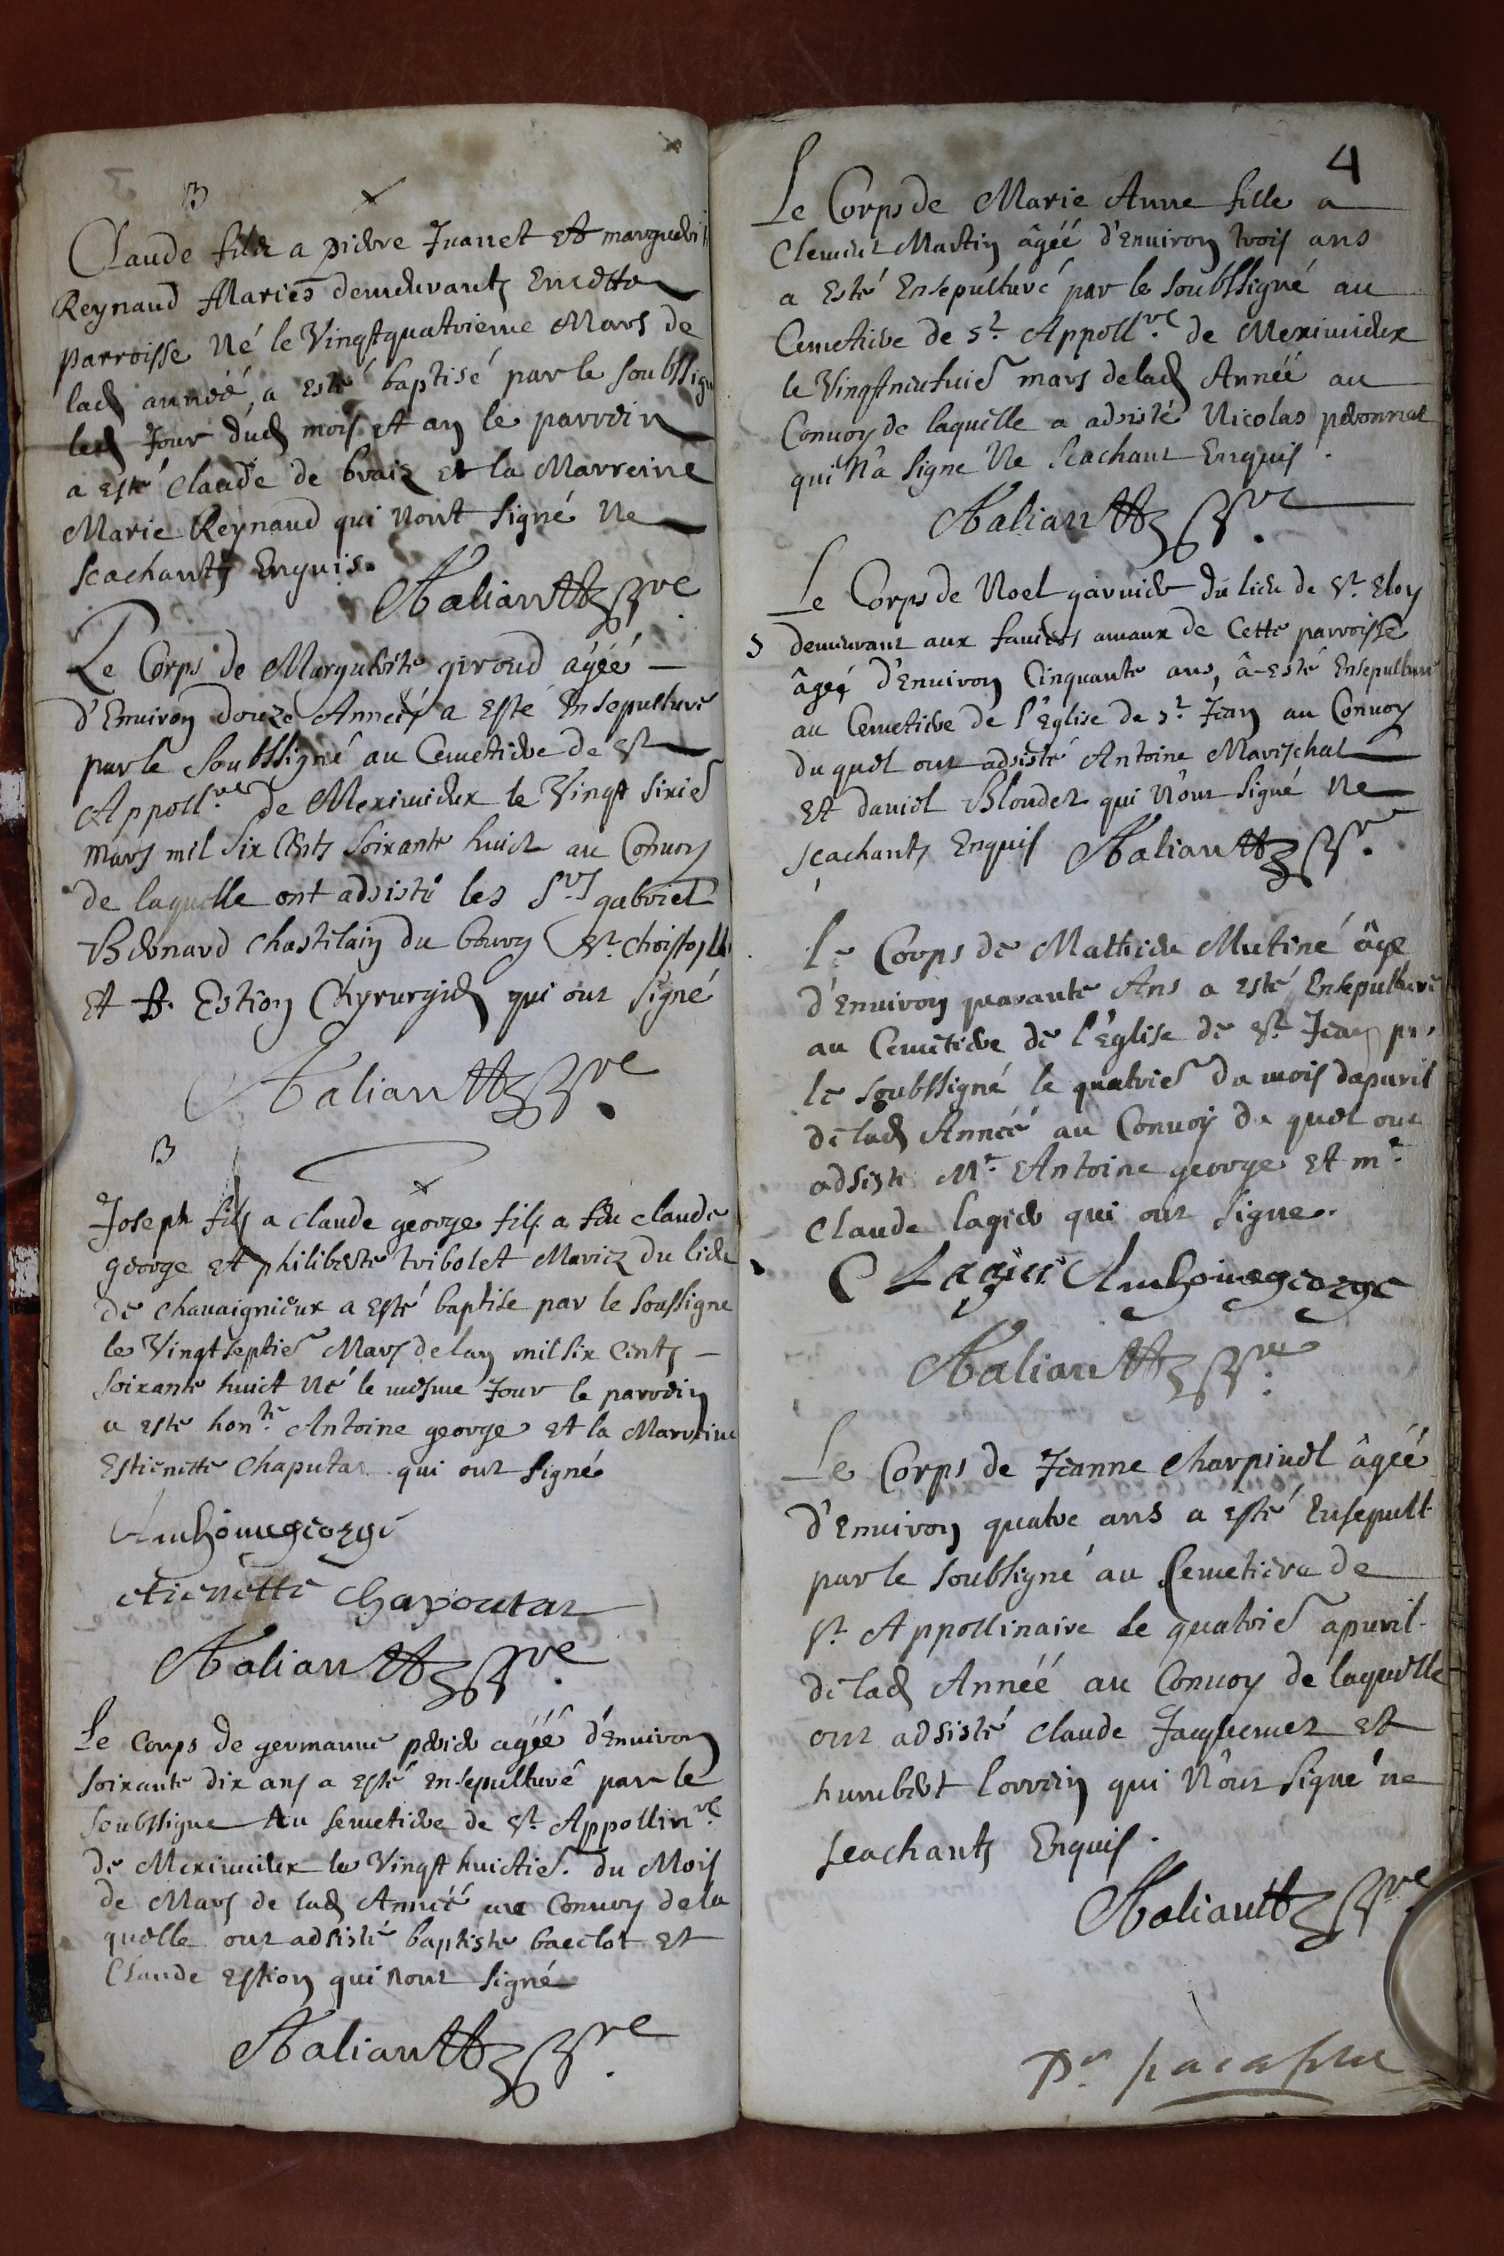 B
Claude fils a pierre Juanet et marguerit
Reynaud Maries demeurants En cette
parroisse Né le Vingtquatrieme Mars de
lad année, a esté baptisé par le soubssigné
led Jour dud mois et an le parrein
a esté Claude de braiz et la Marreine
Marie Reynaud qui n'ont signé Ne
scachants Enquis.
Aaliantz Pre
Le Corps de Marguerite giroud âgéé
d'Environ douze Années a esté Ensepulturé
par le Soubssigné au Cemetiere de St
Appollre de Meximieux le Vingt sixie
Mars mil six Cents soixante huict au Convoy
de laquelle ont adsisté les Srs gabriel
Bernard Chastelain du bourg St Christophle
et B. Estion Chyrurgien qui ont signé
Aaliantz Pre
B
Joseph fils a claude george fils a feu claude
george et philiberte tribolet Mariez du lieu
de chavaignieux a esté baptise par le soussigne
le Vingtseptie Mars de lan mil six Cents
soixante huict Né le mesme Jour le parrein
a esté honte Antoine george et la Marreine
Estienette Chaputar qui ont signé
Anthoine george
etienette Chapoutar
Aaliantz Pre
Le Corps de germanne perier agéé d'Environ
soixante dix ans a esté ensepulturé par le
soubssigne Au semetiere de St Appollinre
de Meximieux le Vingt huictie. du Mois
de Mars de lad Année au Convoy de la
quelle ont adsisté baptiste baeclot et
Claude Estion qui n'ont signé
Aaliantz Pre
4
Le Corps de Marie Anne fille a
Clement Martin âgéé d'Environ trois ans
a Esté Ensepulturé par le soubssigné au
Cemetiere de St Appollre de Meximieux
le Vingtneufuie mars de lad Année au
Convoy de laquelle a adsisté Nicolas peronnet
qui N'a signe Ne scachant Enquis.
Aaliantz Pre
Le Corps de Noel garnier du lieu de St Eloy
demeurant aux faviers amaux de Cette parroisse
âgéé d'Environ Cinquante ans, â esté Ensepulturé
au Cemetiere de l'Eglise de St Jean au Convoy
duquel ont adsisté Antoine Marischal
Et daniel Blondel qui N'ont signé Ne
sçachants Enquis Aaliantz Pr.
Le Corps de Mathieu Mutiné âge
d'Environ quarante Ans a esté Ensepulturé
au Cemetiere de l'Eglise de St Jean par
le soubssigné le quatrie du mois dapuril
de lad Année au Convoy du quel ont
adsiste Mr Antoine george et mr
Claude lagier qui ont signe.
C Lagier Anthoine george
Aaliantz Pre
Le Corps de Jeanne Charpinel âgéé
d'Environ quatre ans a esté Ensepult.
par le soubsigné au Cemetiere de
St Appollinaire le quatrie apuril
de lad Année au Convoy de laquelle
ont adsisté claude Jacquemet et
humbert lorrein qui N'ont signe ne
scachants Enquis.
Aaliantz Pre